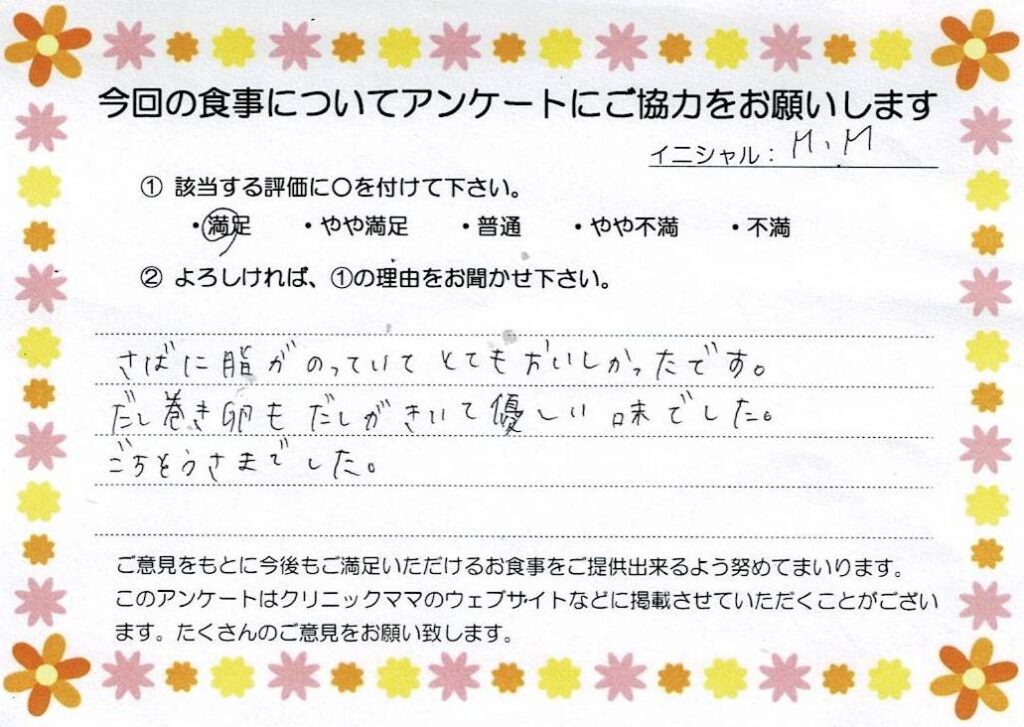 今回の食事についてアンケートにご協力をお願いします
イニシャル： M.M
① 該当する評価に〇を付けて下さい。
・満足 ・やや満足 ・普通 ・やや不満 ・不満
② よろしければ、①の理由をお聞かせ下さい。
さばに脂がのっていてとてもおいしかったです。
だし巻き卵もだしがきいて優しい味でした。
ごちそうさまでした。
ご意見をもとに今後もご満足いただけるお食事をご提供出来るよう努めてまいります。
このアンケートはクリニックママのウェブサイトなどに掲載させていただくことがござい
ます。たくさんのご意見をお願い致します。